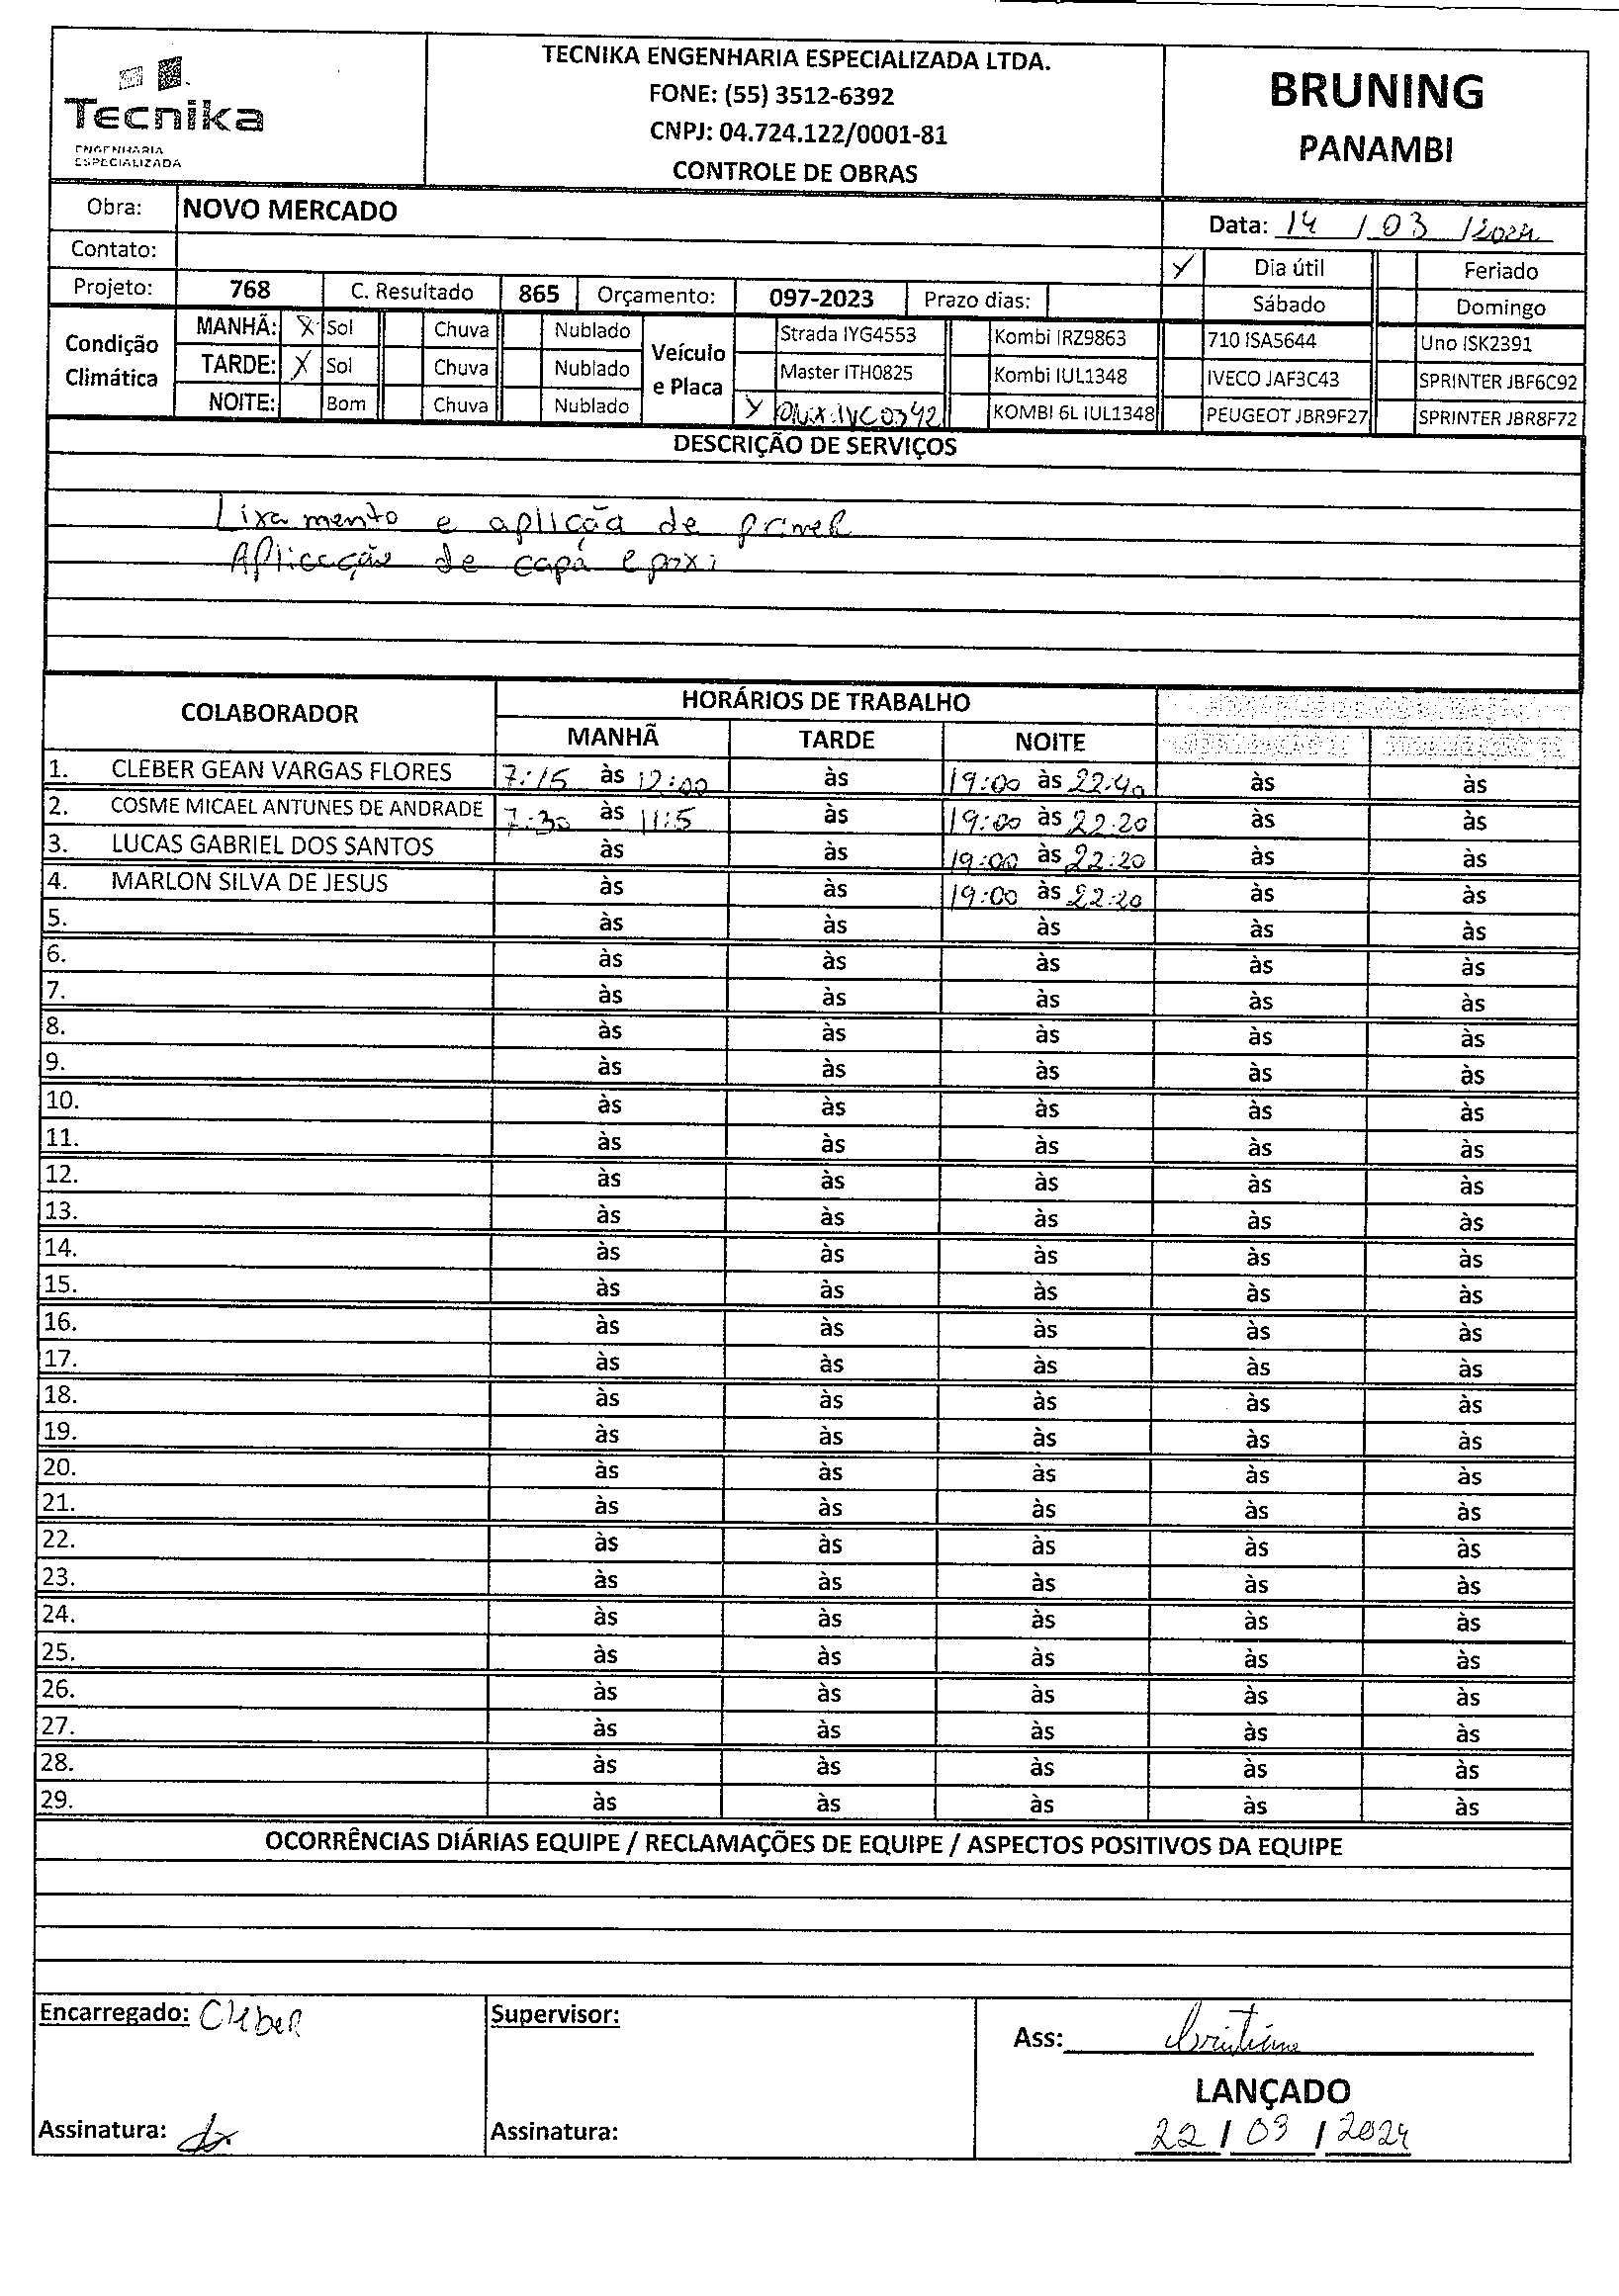 TECNIKA ENGENHARIA ESPECIALIZADA LTDA.
FONE: (55) 3512-6392
CNPJ: 04.724.122/0001-81
CONTROLE DE OBRAS
Tecnika
ENGENHARIA
ESPECIALIZADA
BRUNING
PANAMBI
Obra: NOVO MERCADO
Data: 14 / 03 / 2024
Contato:
X Dia útil Feriado
Projeto: 768 C. Resultado 865 Orçamento: 097-2023 Prazo dias:
Sábado Domingo
Condição Climática
MANHÃ: X Sol Chuva Nublado
TARDE: X Sol Chuva Nublado
NOITE: Bom Chuva Nublado
Veículo e Placa
Strada IYG4553 Kombi IRZ9863 710 ISA5644 Uno ISK2391
Master ITH0825 Kombi IUL1348 IVECO JAF3C43 SPRINTER JBF6C92
X Onix: IVC0342 KOMBI 6L IUL1348 PEUGEOT JBR9F27 SPRINTER JBR8F72
DESCRIÇÃO DE SERVIÇOS
Lixamento e aplicão de primer
Aplicação de capa epoxi
COLABORADOR HORÁRIOS DE TRABALHO
MANHÃ TARDE NOITE
1. CLEBER GEAN VARGAS FLORES 7:15 às 12:00 às 19:00 às 22:40 às às
2. COSME MICAEL ANTUNES DE ANDRADE 7:30 às 11:5 às 19:00 às 22:20 às às
3. LUCAS GABRIEL DOS SANTOS às às 19:00 às 22:20 às às
4. MARLON SILVA DE JESUS às às 19:00 às 22:20 às às
5. às às às às às
6. às às às às às
7. às às às às às
8. às às às às às
9. às às às às às
10. às às às às às
11. às às às às às
12. às às às às às
13. às às às às às
14. às às às às às
15. às às às às às
16. às às às às às
17. às às às às às
18. às às às às às
19. às às às às às
20. às às às às às
21. às às às às às
22. às às às às às
23. às às às às às
24. às às às às às
25. às às às às às
26. às às às às às
27. às às às às às
28. às às às às às
29. às às às às às
OCORRÊNCIAS DIÁRIAS EQUIPE / RECLAMAÇÕES DE EQUIPE / ASPECTOS POSITIVOS DA EQUIPE
Encarregado: Cleber
Supervisor:
Ass: Cristiane
LANÇADO
Assinatura:
Assinatura:
22 / 03 / 2024